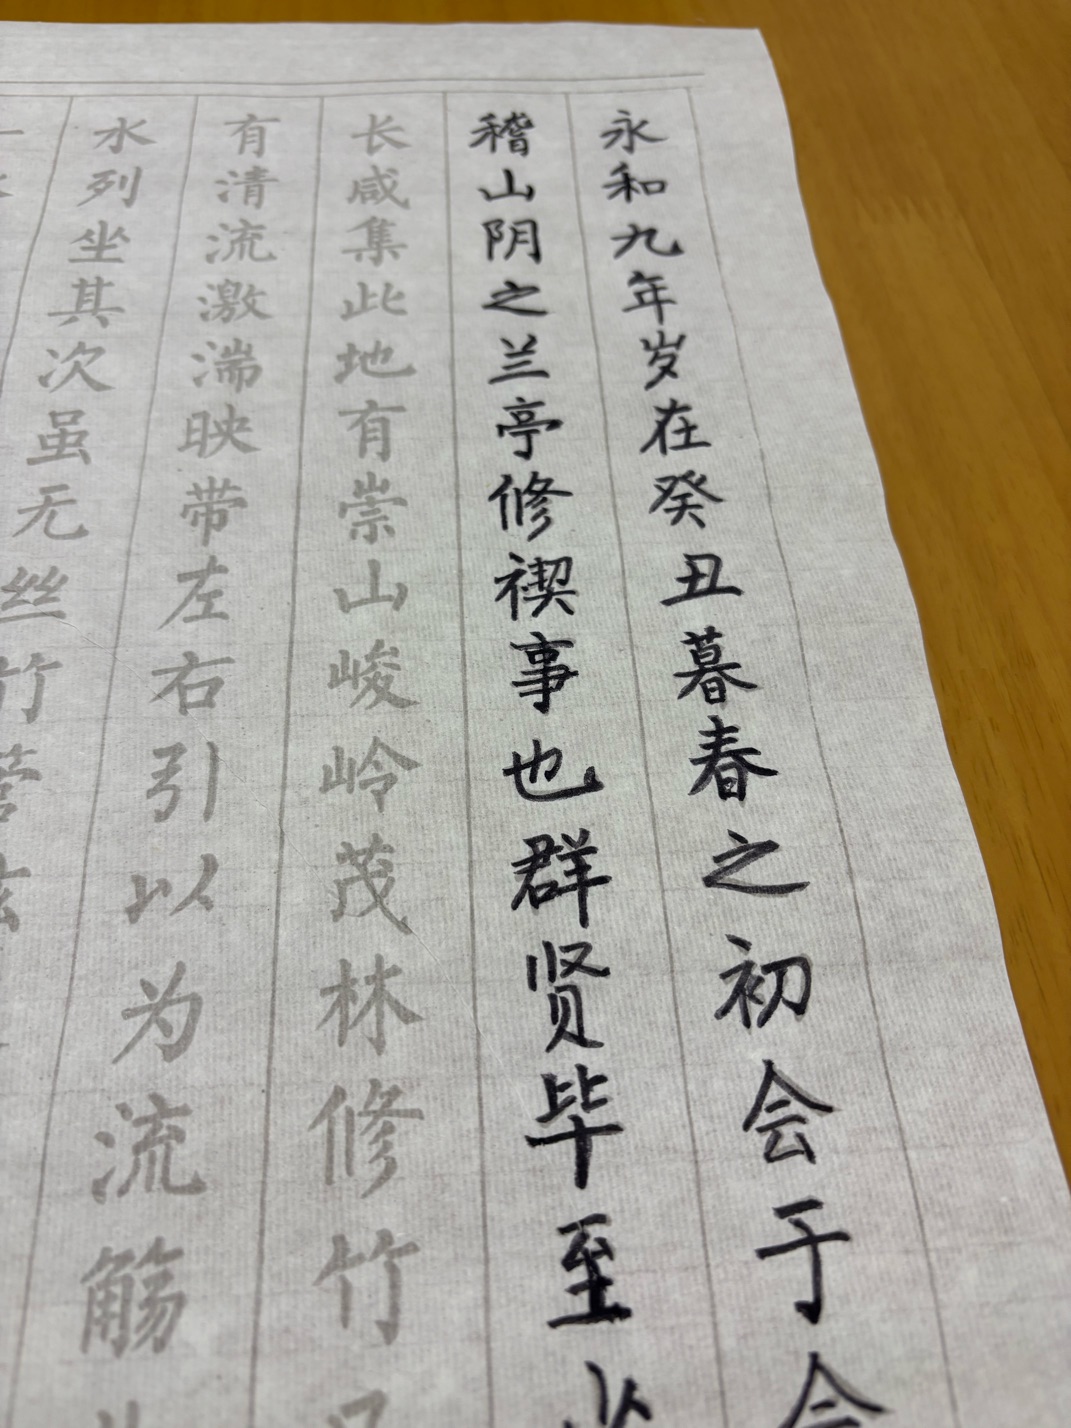 永和九年岁在癸丑暮春之初会于会
稽山阴之兰亭修禊事也群贤毕至少
长咸集此地有崇山峻岭茂林修竹又
有清流激湍映带左右引以为流觞
水列坐其次虽无丝竹管弦